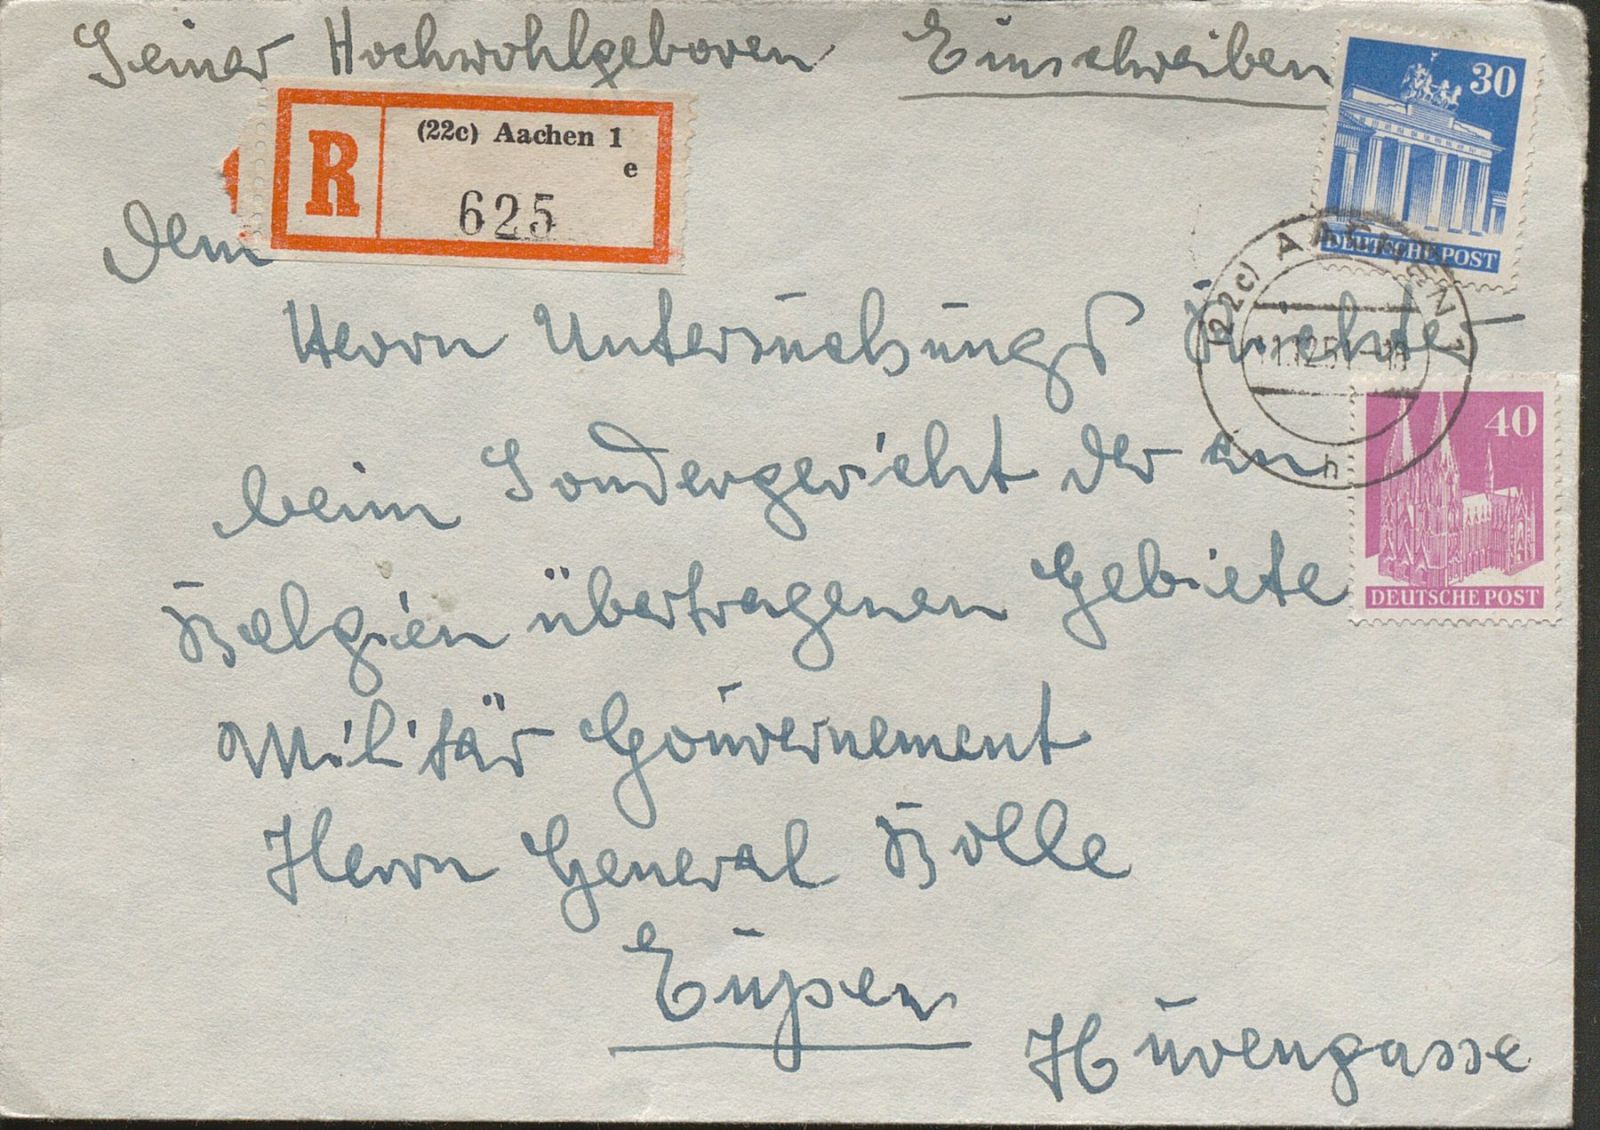 Seiner Hochwohlgeboren Einschreiben
30
DEUTSCHE POST
R (22c) Aachen 1
e
625
Dem
(22c) AACHEN 1
h
Herrn Untersuchungs
beim Sondergericht der an
Belgien übertragenen Gebiete
40
DEUTSCHE POST
Militär Gouvernement
Herrn General Bolle
Eupen
Hüvengasse